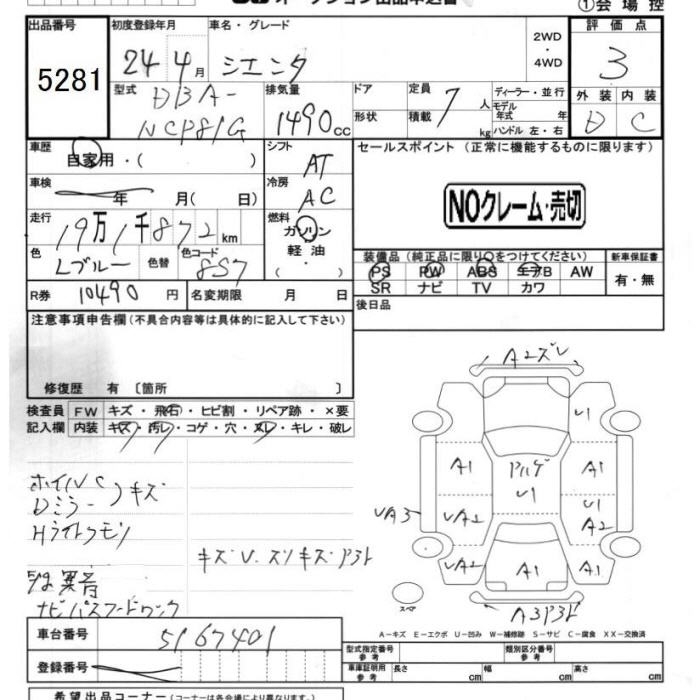 オークション出品申込書
①会場控
出品番号
5281
初度登録年月
24 4月
車名・グレード
シエンタ
2WD
・
4WD
評価点
3
外装 内装
D C
型式
DBA-
NCP81G
排気量
1490cc
ドア
形状
定員
積載
7人
kg
ディーラー・並行
モデル
年式 年
ハンドル 左・右
車歴
自家用・( )
シフト
AT
セールスポイント (正常に機能するものに限ります)
NOクレーム・売切
車検
年 月( 日)
冷房
AC
走行
19万1千872km
燃料
ガソリン
・
軽油
色
Lブルー
色替
色コード
8S7
装備品 (純正品に限り○をつけてください)
PS PW ABS エアB AW
SR ナビ TV カワ
新車保証書
有・無
R券
10490円
名変期限 月 日
後日品
注意事項申告欄(不具合内容等は具体的に記入して下さい)
修復歴 有〔箇所 〕
検査員
記入欄
FW キズ・飛石・ヒビ割・リペア跡・×要
内装 キズ・汚レ・コゲ・穴・ヌレ・キレ・破レ
ホイルC
Dミラー
キズ
Hライトクモリ
キズU.スリキズP3ト
異音
A2ズレ
U1
A1
A1
U1
U1
A2
UA3
UA2
UA2
A1
A1
スペア
A3P3ト
A－キズ E－エクボ U－凹み W－補修跡 S－サビ C－腐食 XX－交換済
車台番号
5167401
登録番号
型式指定番号
参考
類別区分番号
参考
車庫証明用
参考
長さ 幅 高さ
cm cm cm
希望出品コーナー